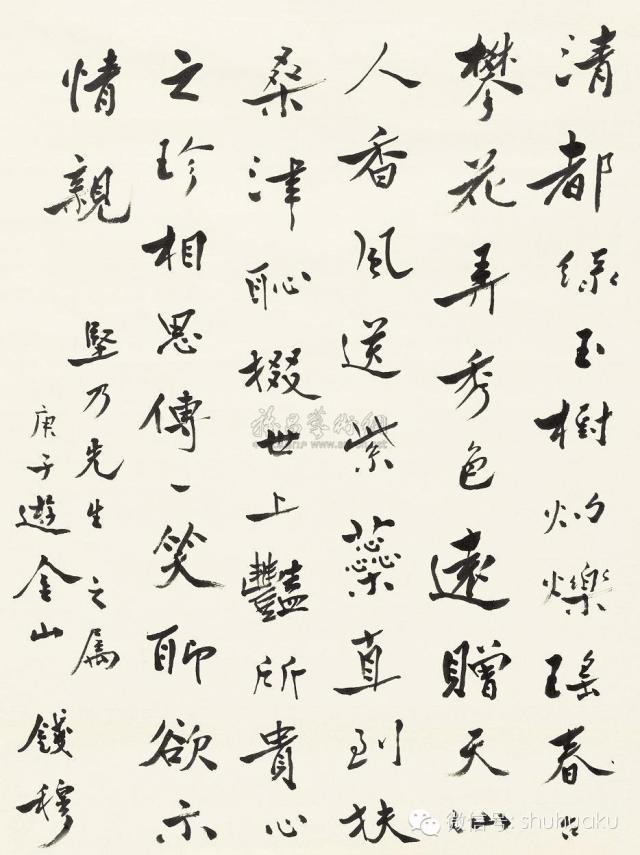 清都綠玉樹灼爍瑤春台
攀花弄秀色遠贈天仙
人香風送紫蘂直到扶
桑津恥掇世上豔所貴心
之珍相思傳一笑聊欲示
情親
堅乃先生之屬
庚子遊金山 錢穆
微信号: shuhuaku